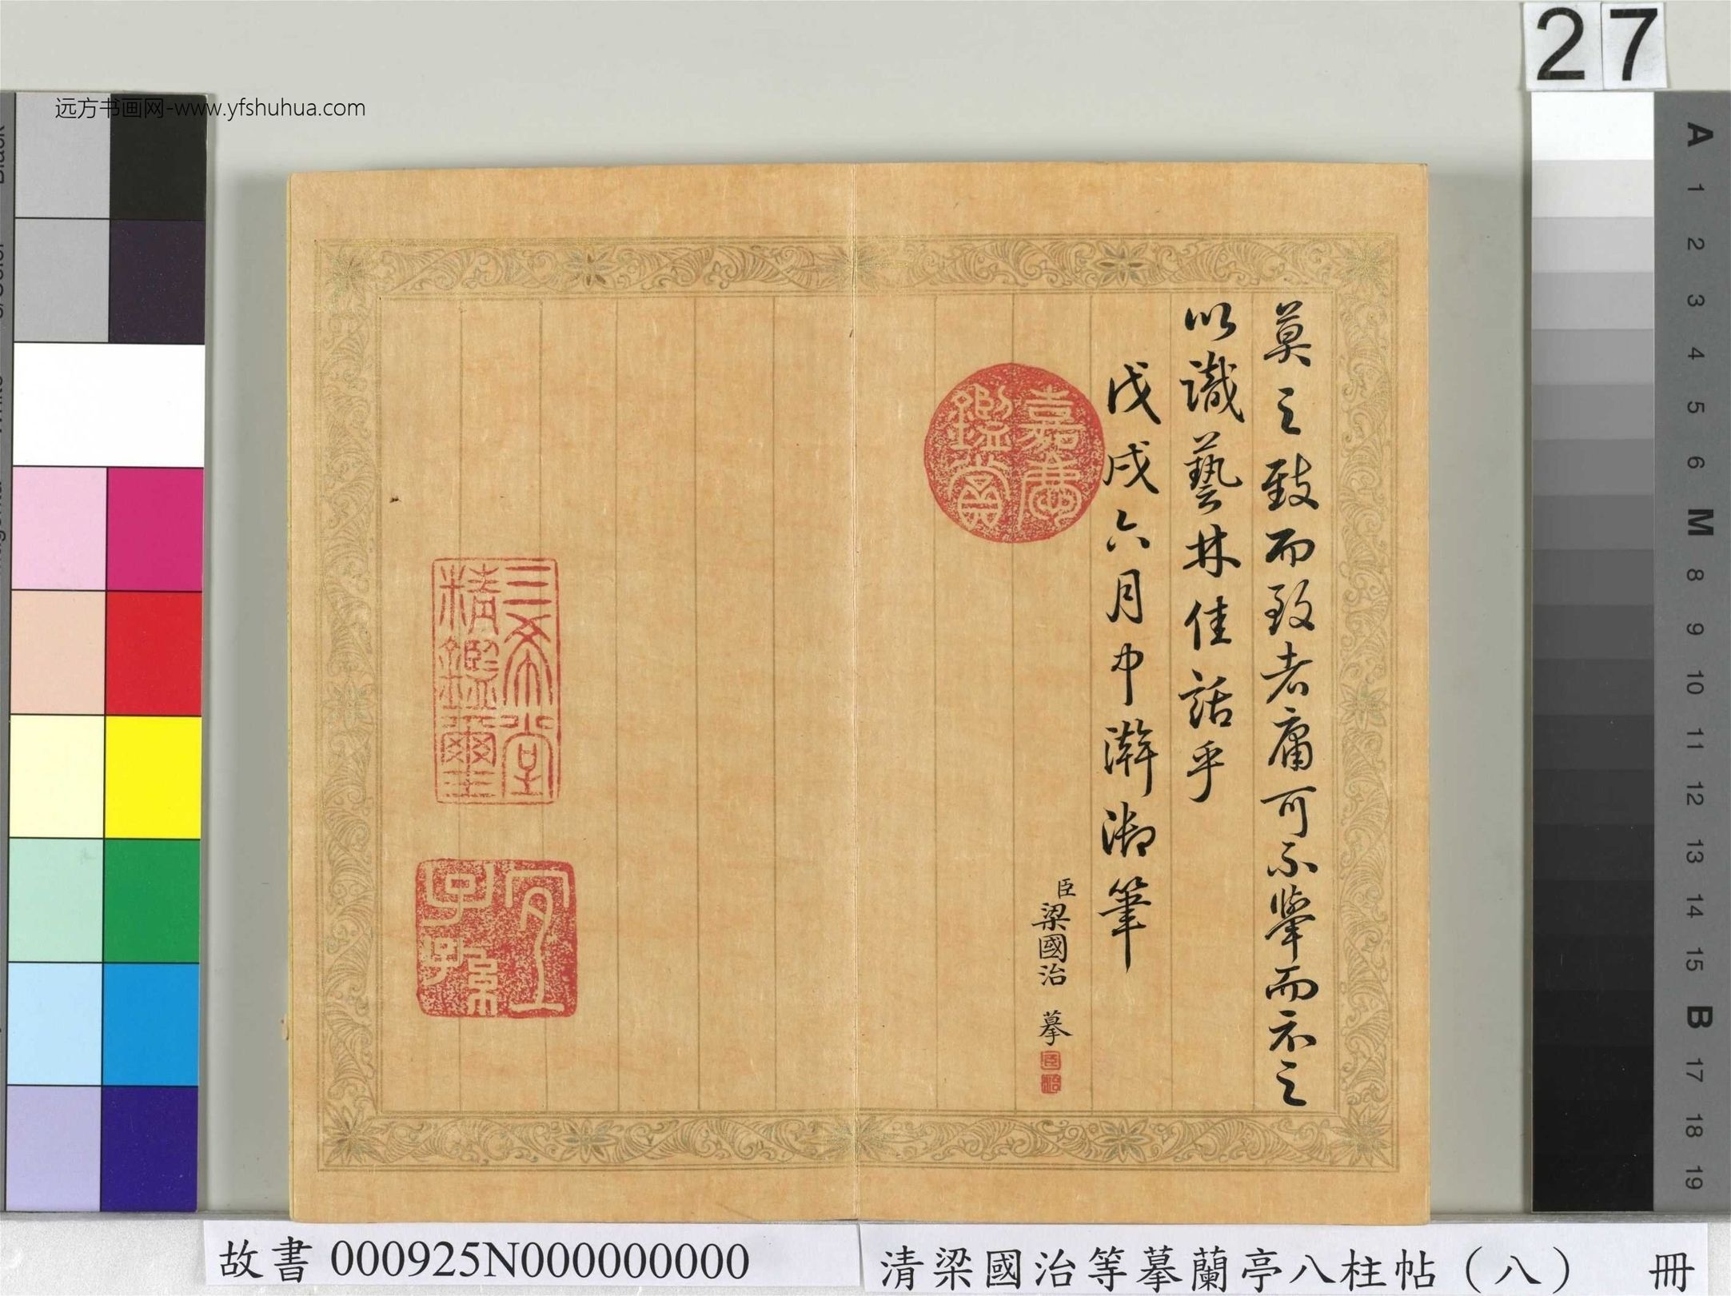 27
远方书画网-www.yfshuhua.com
莫之致而致者庸可不舉而示之
以識藝林佳話乎
戊戌六月中澣御筆
臣梁國治 摹
嘉慶鑑賞
三希堂精鑑璽
宜子孫
A
1
2
3
4
5
6
M
8
9
10
11
12
13
14
15
B
17
18
19
故書 000925N000000000
清梁國治等摹蘭亭八柱帖（八） 冊